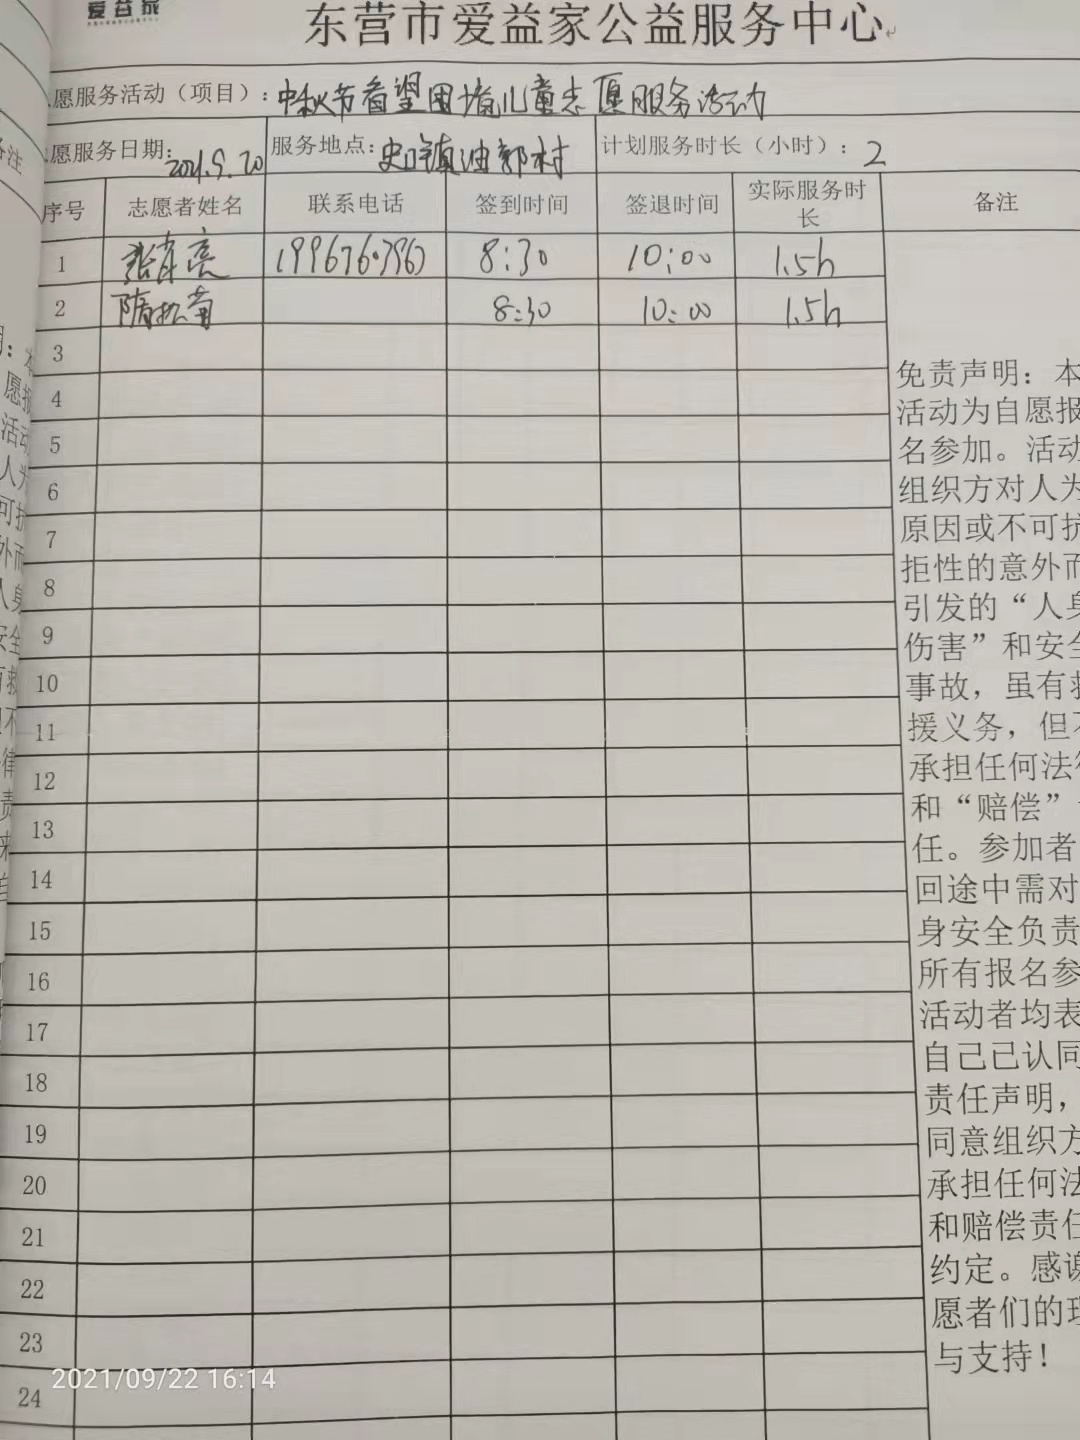 爱益家
东营市爱益家公益服务中心
愿服务活动（项目）：中秋节看望困境儿童志愿服务活动
愿服务日期：2021.9.20 服务地点：史口镇油郭村 计划服务时长（小时）：2
序号 志愿者姓名 联系电话 签到时间 签退时间 实际服务时长 备注
1 8:30 10:00 1.5h
2 8:30 10:00 1.5h
3
4
5
6
7
8
9
10
11
12
13
14
15
16
17
18
19
20
21
22
23
24
免责声明：本
活动为自愿报
名参加。活动
组织方对人为
原因或不可抗
拒性的意外而
引发的“人身
伤害”和安全
事故，虽有救
援义务，但不
承担任何法律
和“赔偿”
任。参加者
回途中需对
身安全负责
所有报名参
活动者均表
自己已认同
责任声明，
同意组织方
承担任何法
和赔偿责任
约定。感谢
愿者们的理
与支持！
2021/09/22 16:14